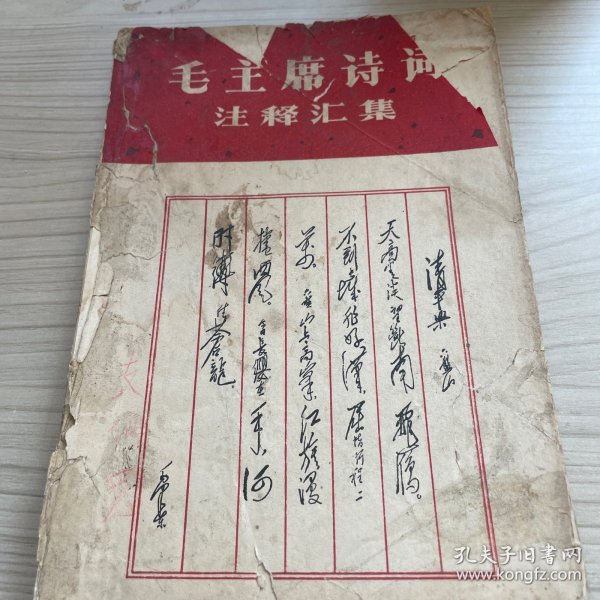 毛主席诗词
注释汇集
清平樂 六盘山
天高雲淡望断南飛雁。
不到長城非好漢屈指行程二
萬。六盘山上高峯红旗漫
捲西風。今日長纓在手何
时縛住蒼龍。
毛泽东
孔夫子旧书网
www.kongfz.com